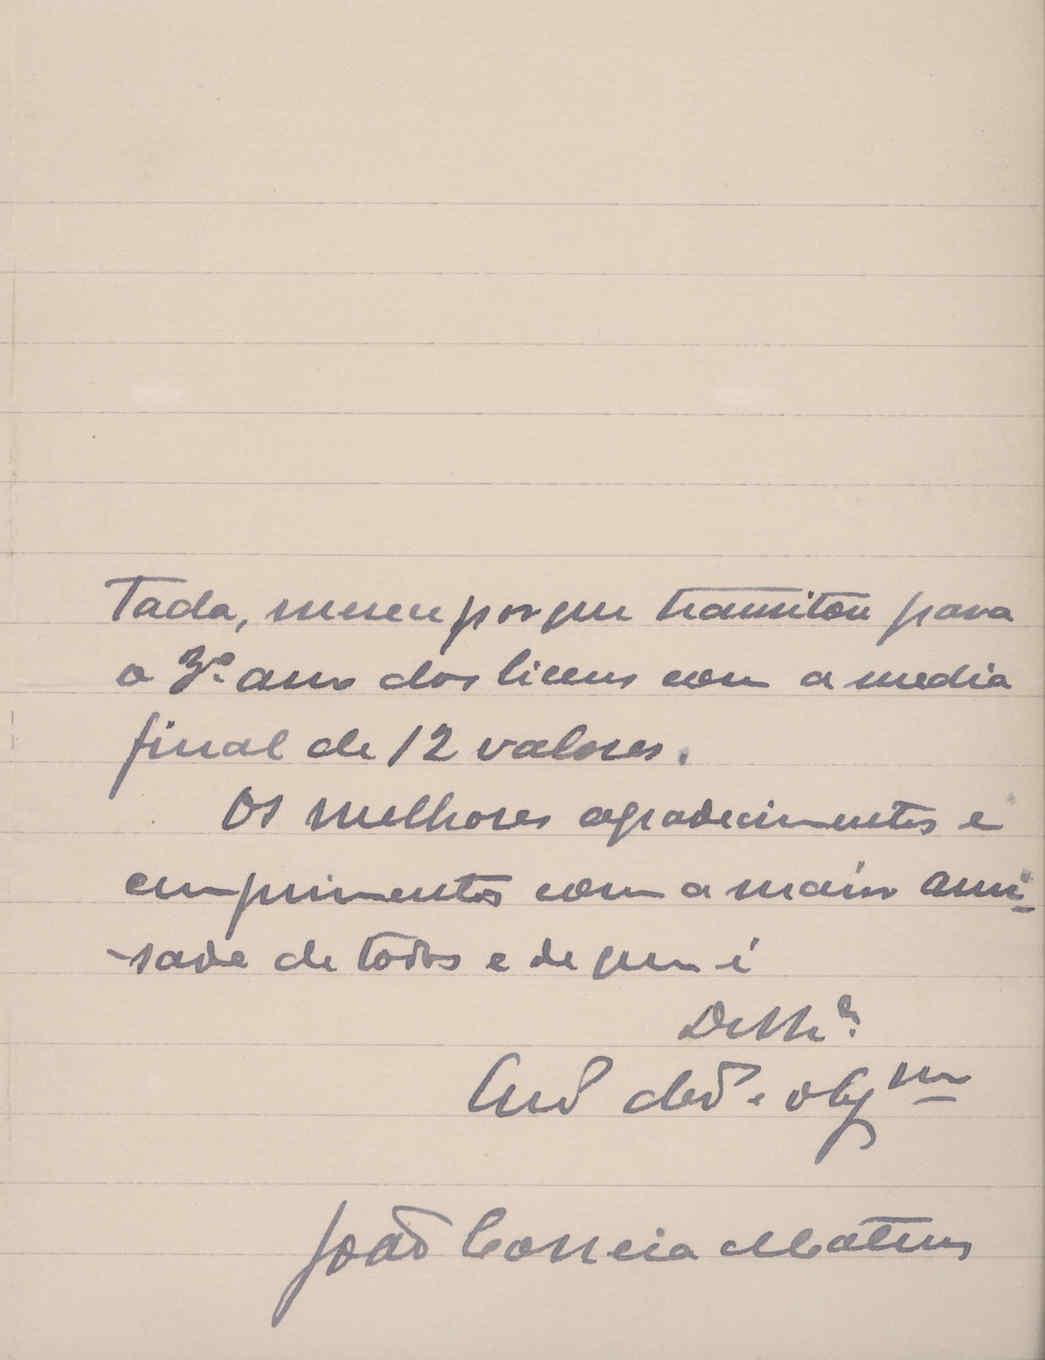 tada, mesmo porque transitou para
o 3.º ano dos liceus com a media
final de 12 valores.
Os melhores agradecimentos e
cumprimentos com a maior ami-
sade de todos e de quem é
De V.
Cr.do ded.o e obg.mo
João Correia Mateus